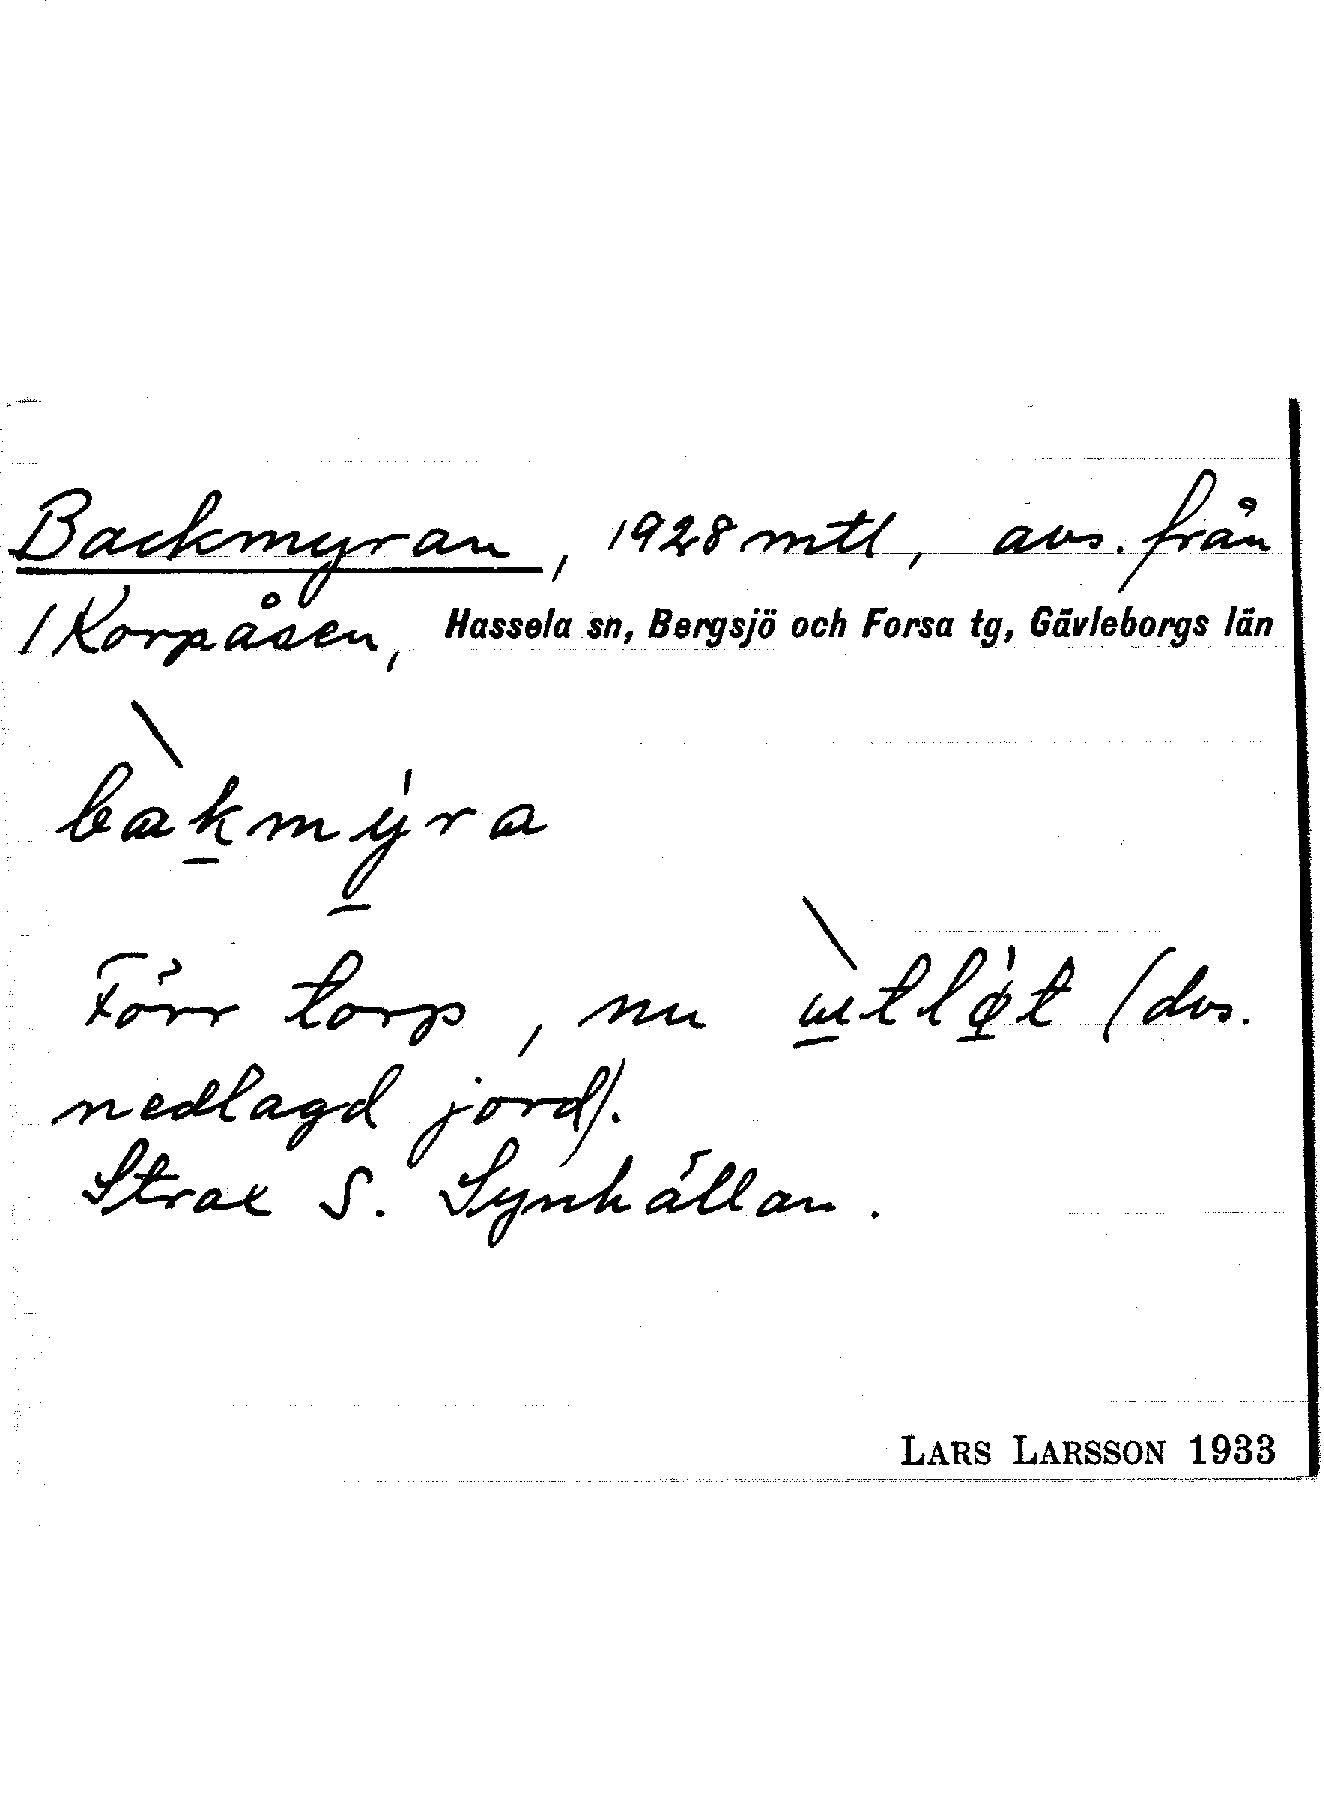 Backmyran, 1928 mtl, avs. från
1 Korpåsen, Hassela sn, Bergsjö och Forsa tg, Gävleborgs län
bàkmýra
Förr torp, nu (dvs.
nedlagd jord).
Strax S. Synhällan.
LARS LARSSON 1933